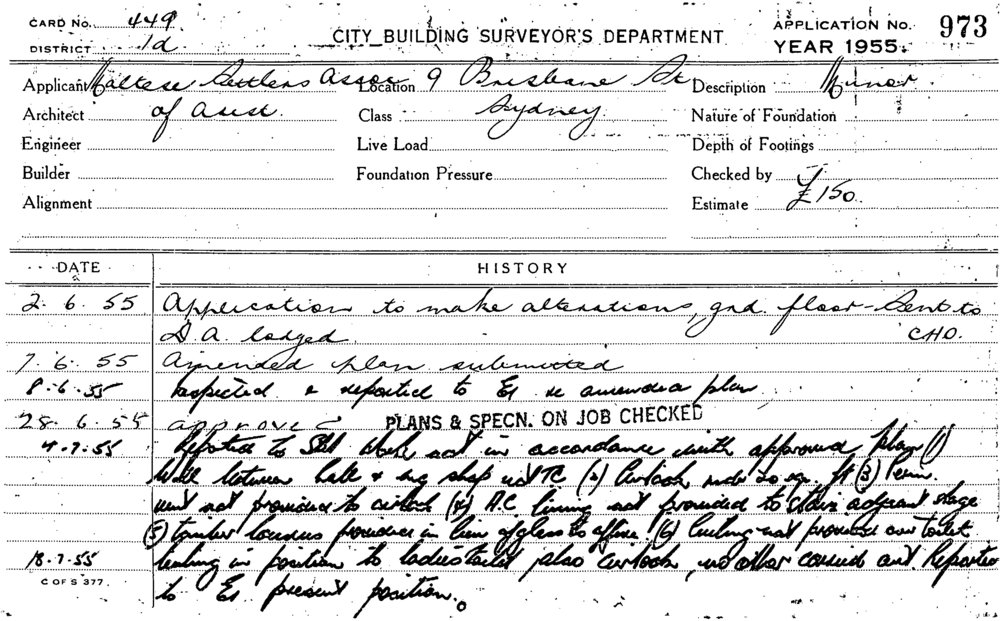 CARD No. 449
DISTRICT 1d
CITY BUILDING SURVEYOR'S DEPARTMENT
APPLICATION No. 973
YEAR 1955.
Applicant Maltese Settlers Assoc Location 9 Brisbane St Description Minor
Architect of Aust Class Sydney Nature of Foundation
Engineer Live Load Depth of Footings
Builder Foundation Pressure Checked by
Alignment Estimate £150
DATE HISTORY
2.6.55 Application to make alterations, gnd. floor - Sent to
D.A. lodged. CHO.
7.6.55 Amended plan submitted
8.6.55 Inspected & reported to re amended plan
28.6.55 approved PLANS & SPECN. ON JOB CHECKED
4.7.55 Reported to work not in accordance with approved plan (1)
Wall between hall & shop not TC (2) (3) Perm.
vent not provided to (4) A.C. lining not provided to stairs adjacent stage
(5) timber louvres provided in lieu of glass to office (6) Ceiling not provided over toilet
18.7.55 Ceiling in position to ladies toilet also no other carried out. Reported
C OF S 377.
to present position.